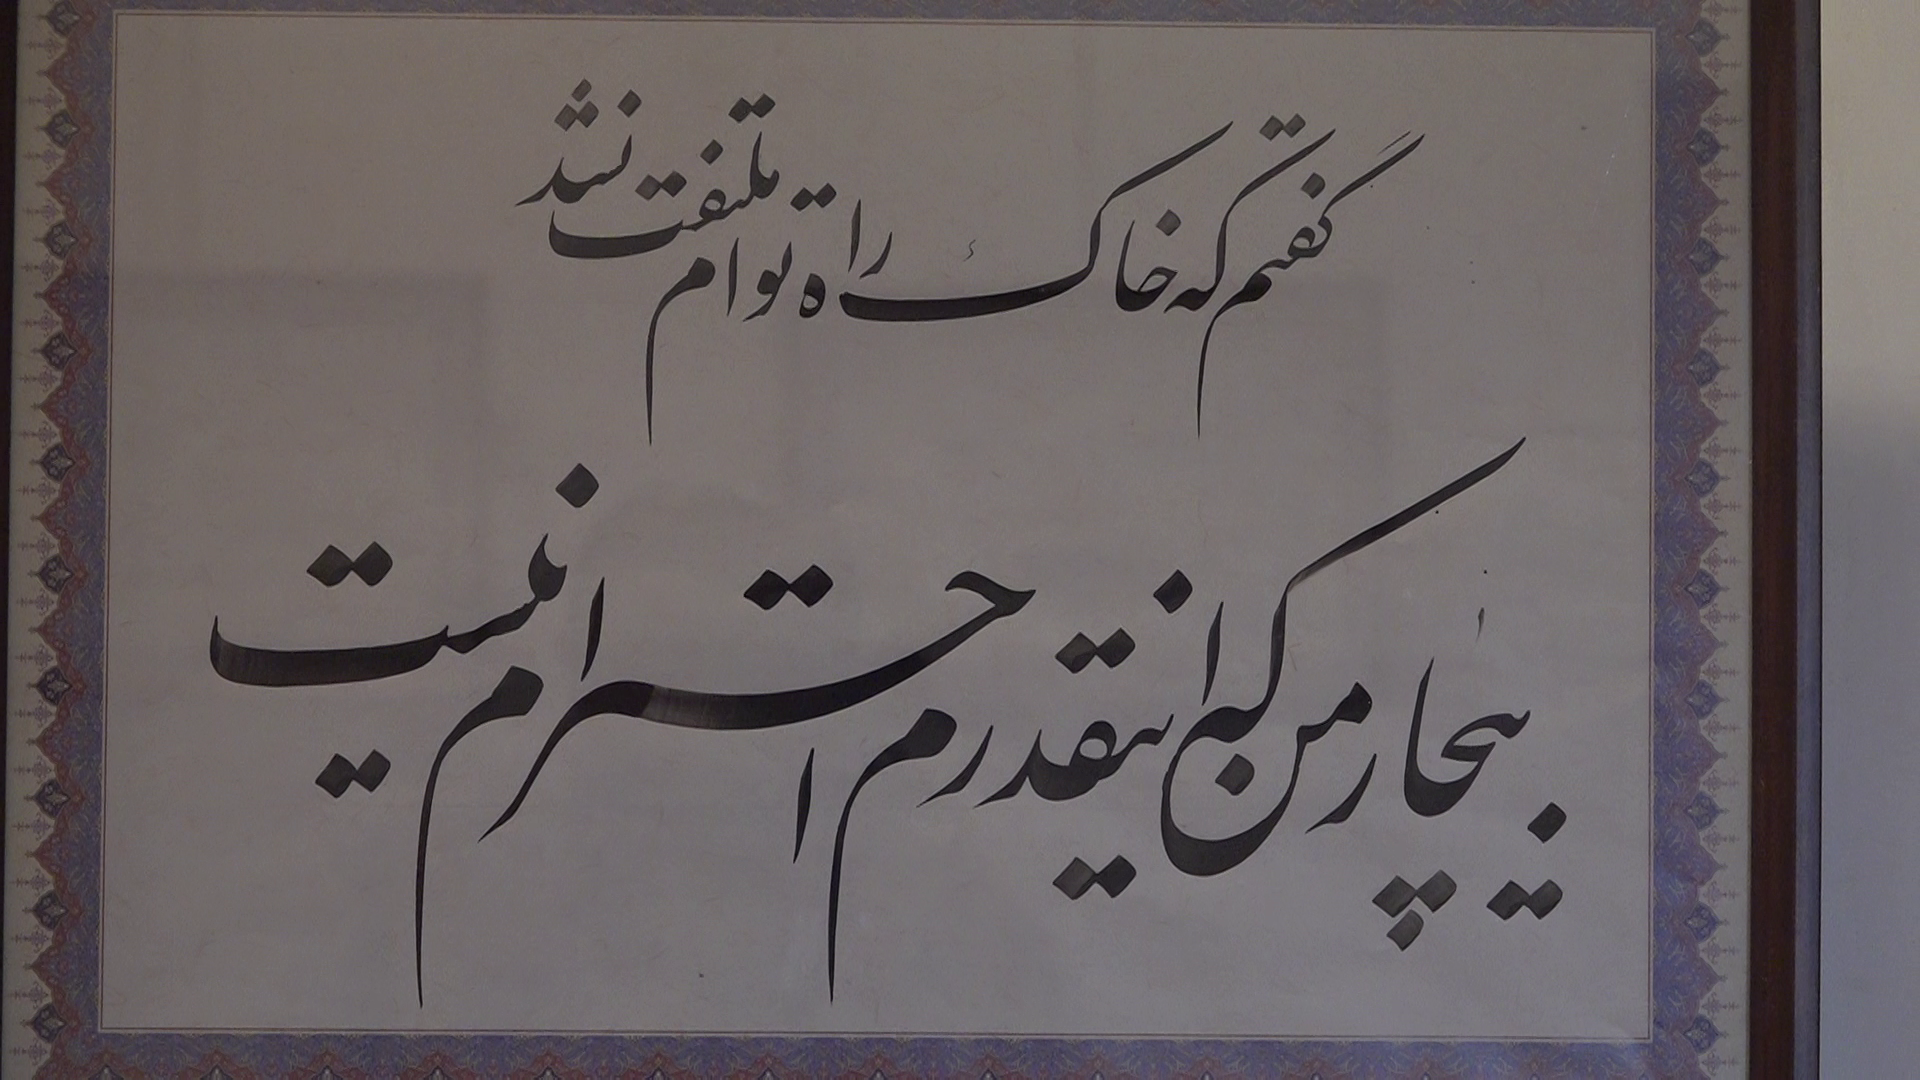 گفتم که خاک راه توام ملتفت نشد
بیچاره من که اینقدرم احترام نیست